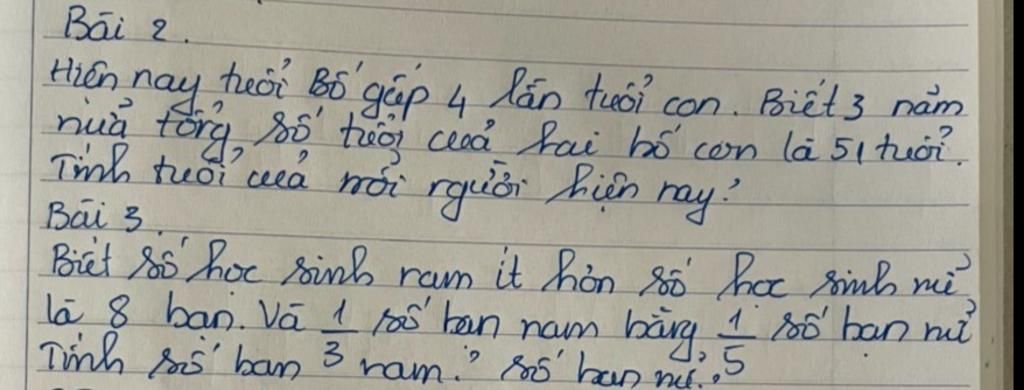 Bài 2.
Hiện nay tuổi Bố gấp 4 lần tuổi con. Biết 3 năm
nữa tổng số tuổi của hai bố con là 51 tuổi.
Tính tuổi của mỗi người hiện nay?
Bài 3.
Biết số học sinh nam ít hơn số học sinh nữ
là 8 bạn. Và 1/3 số bạn nam bằng 1/5 số bạn nữ
Tính số bạn nam? Số bạn nữ?